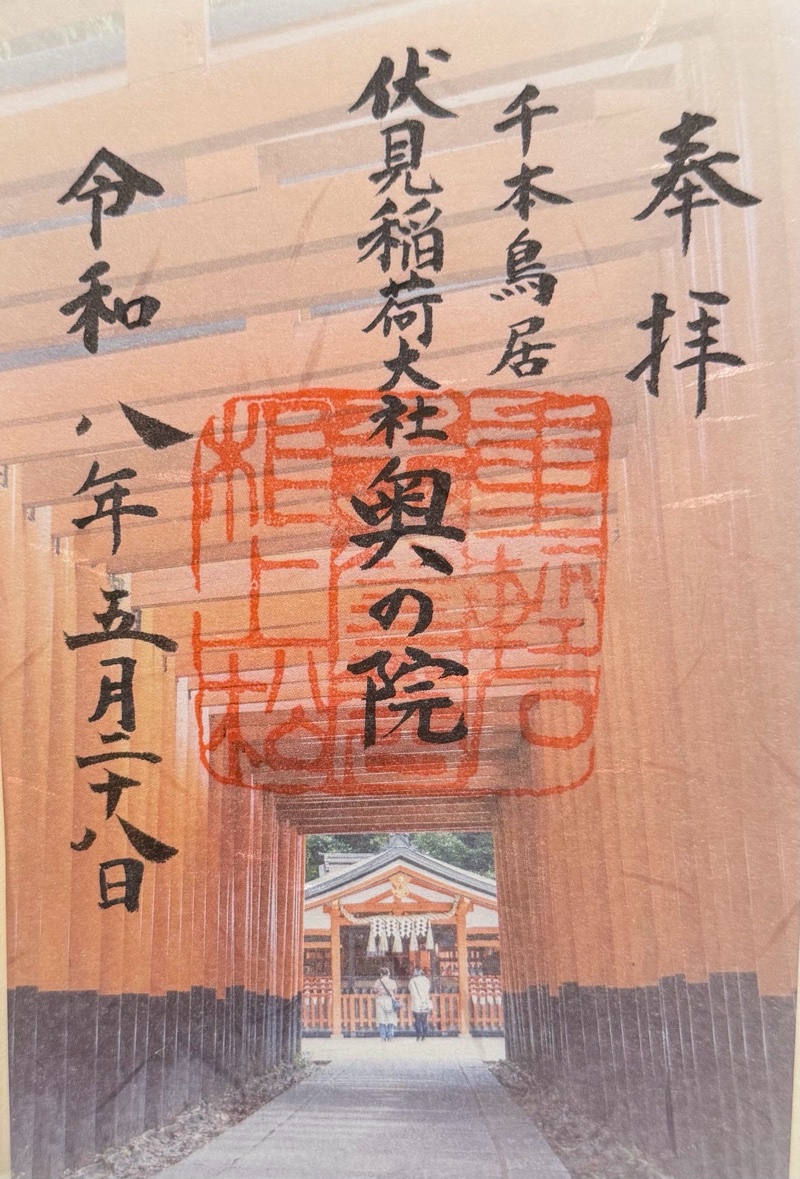 奉拝
千本鳥居
伏見稲荷大社奥の院
令和八年五月二十八日